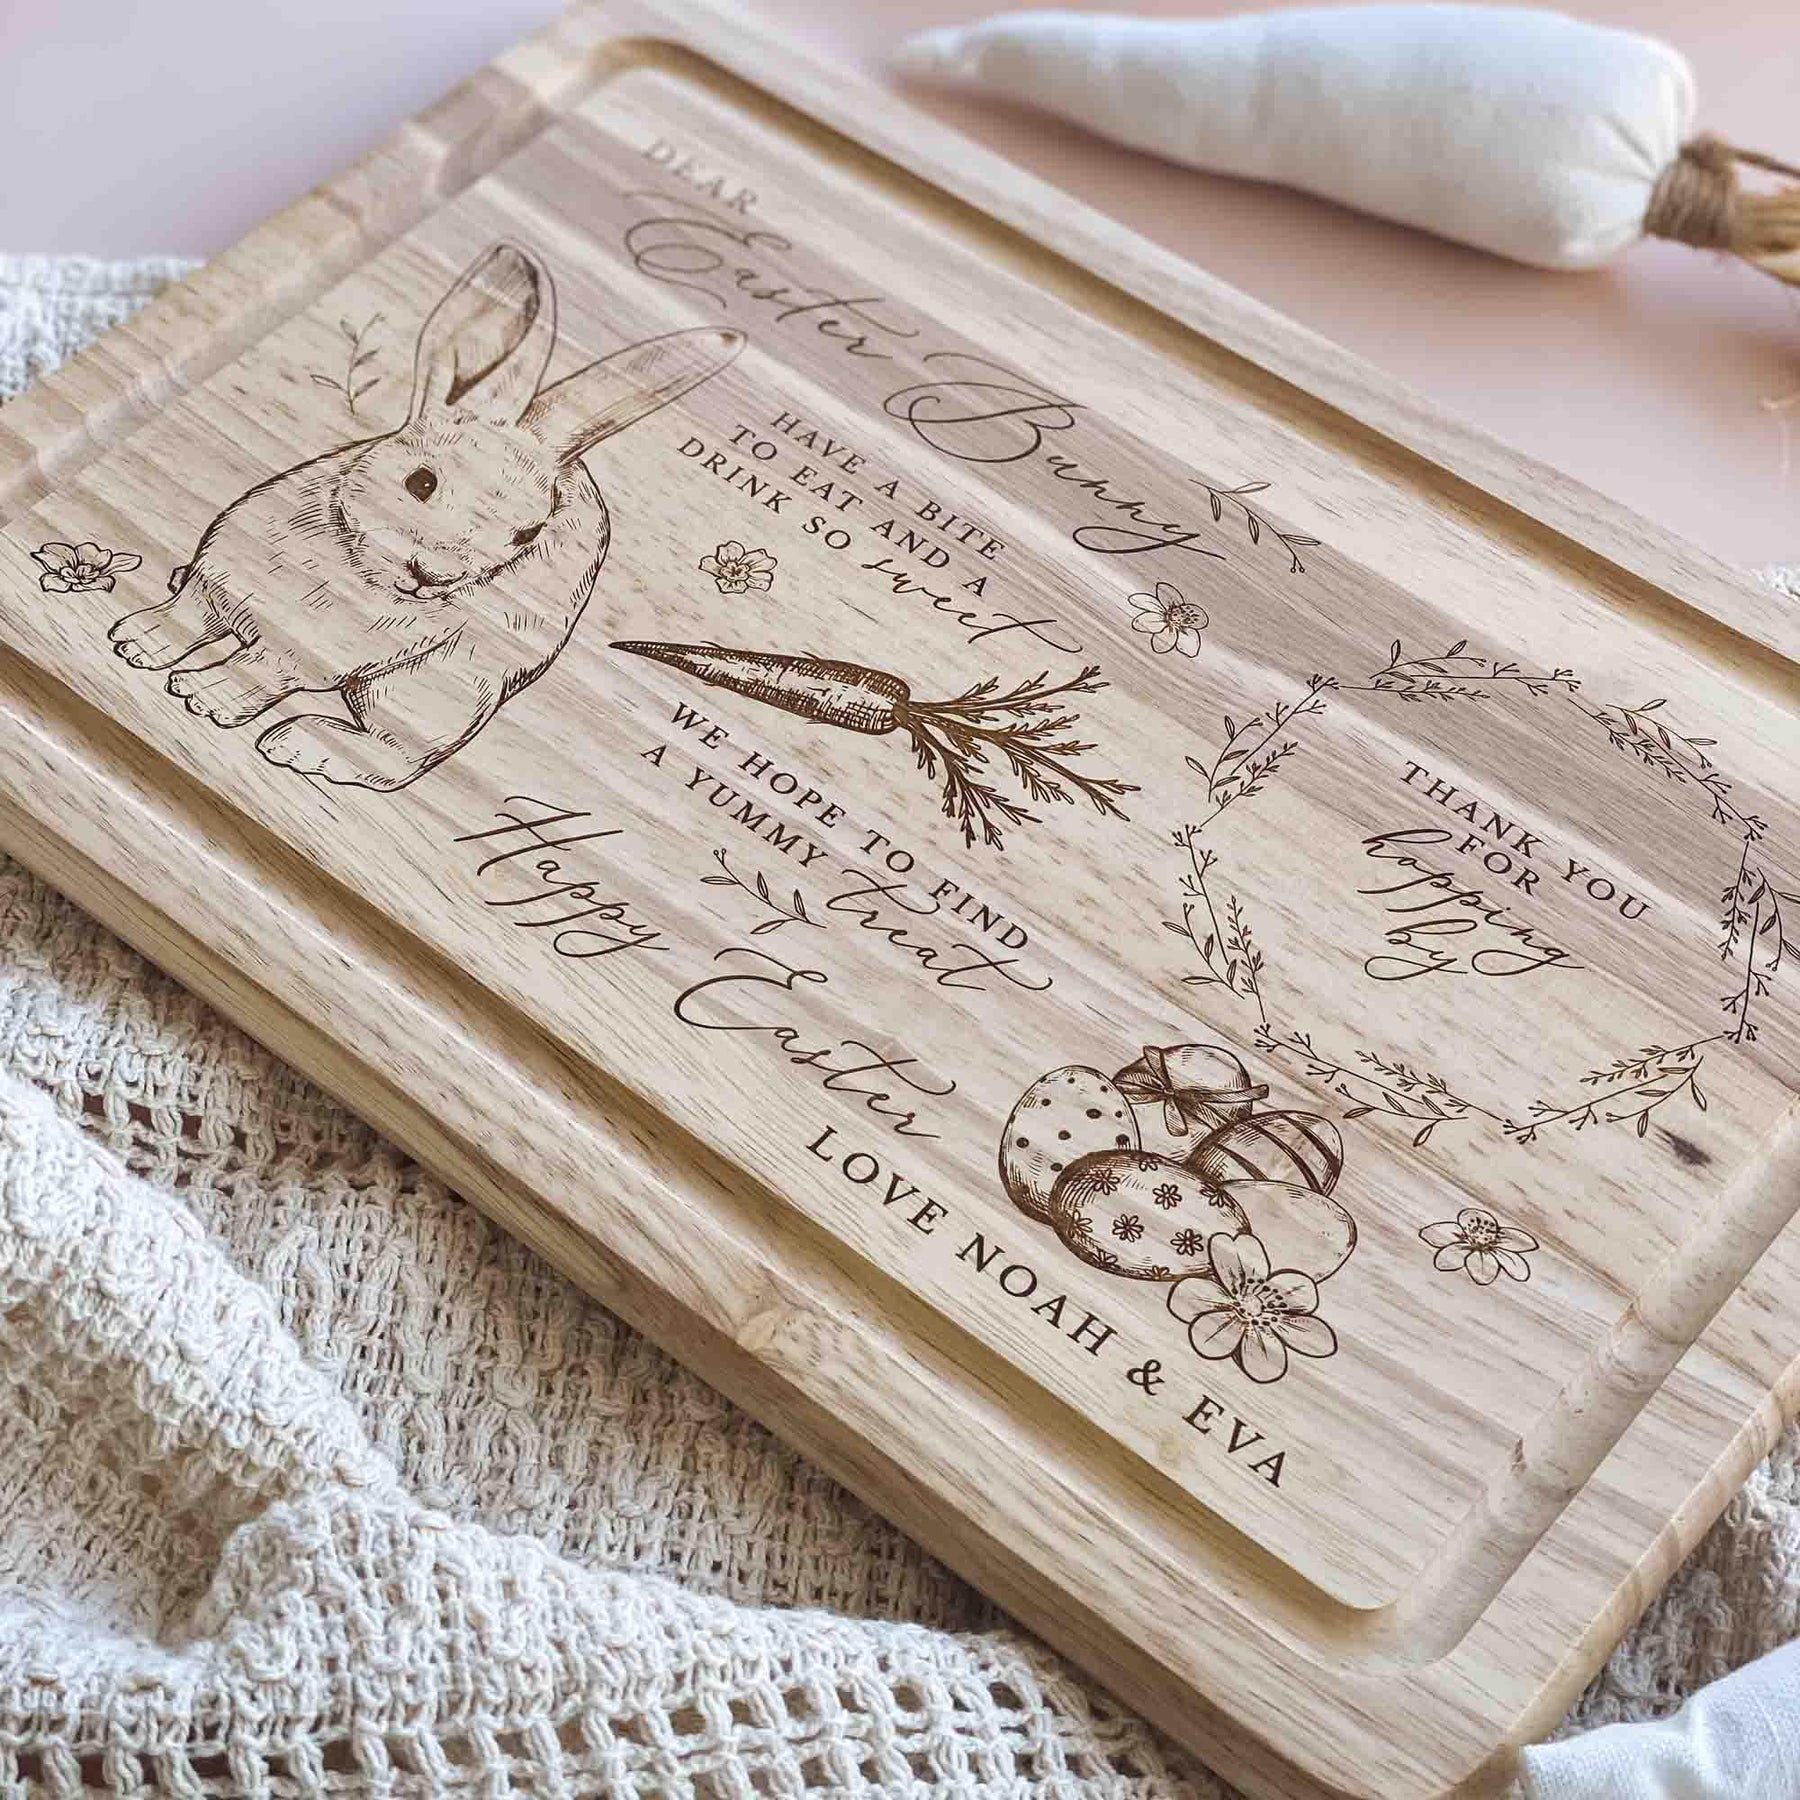 DEAR
Easter Bunny
HAVE A BITE
TO EAT AND A
DRINK SO sweet
WE HOPE TO FIND
A YUMMY treat
Happy Easter
LOVE NOAH & EVA
THANK YOU
FOR
hopping
by